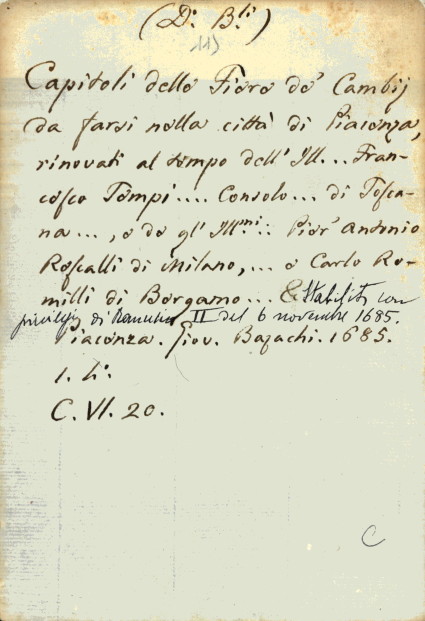 (D. B.li)
113
Capitoli delle Fiere de' Cambij
da farsi nella città di Piacenza,
rinovati al tempo dell' Ill... Fran-
cesco Tempi.... Console... di Tosca-
na..., e de gl' Ill.mi.. Pier' Antonio
Roscalli di Milano,... e Carlo Ro-
milli di Bergamo... & Stabiliti con
privilegi di Ranuccio II del 6 novembre 1685.
Piacenza. Giov. Bazachi. 1685.
1. 4°.
C. VI. 20.
C